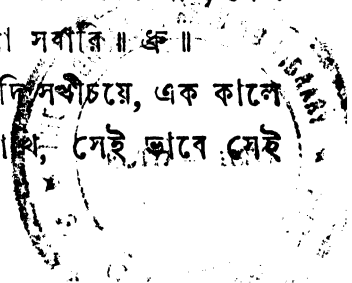 সবারি॥ ধ্রু॥
সখীচয়ে, এক কালে
সেই ভাবে সেই